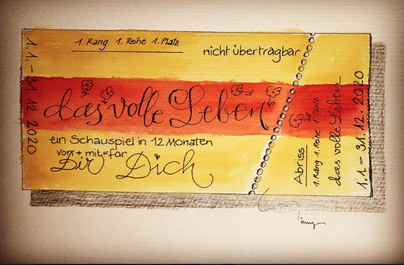 1.1.-31.12.2020
1. Rang 1. Reihe 1. Platz
nicht übertragbar
das volle Leben
ein Schauspiel in 12 Monaten
von + mit + für
Dir Dich
Abriss
1. Rang 1. Reihe 1. Platz
das volle Leben
1.1.-31.12.2020